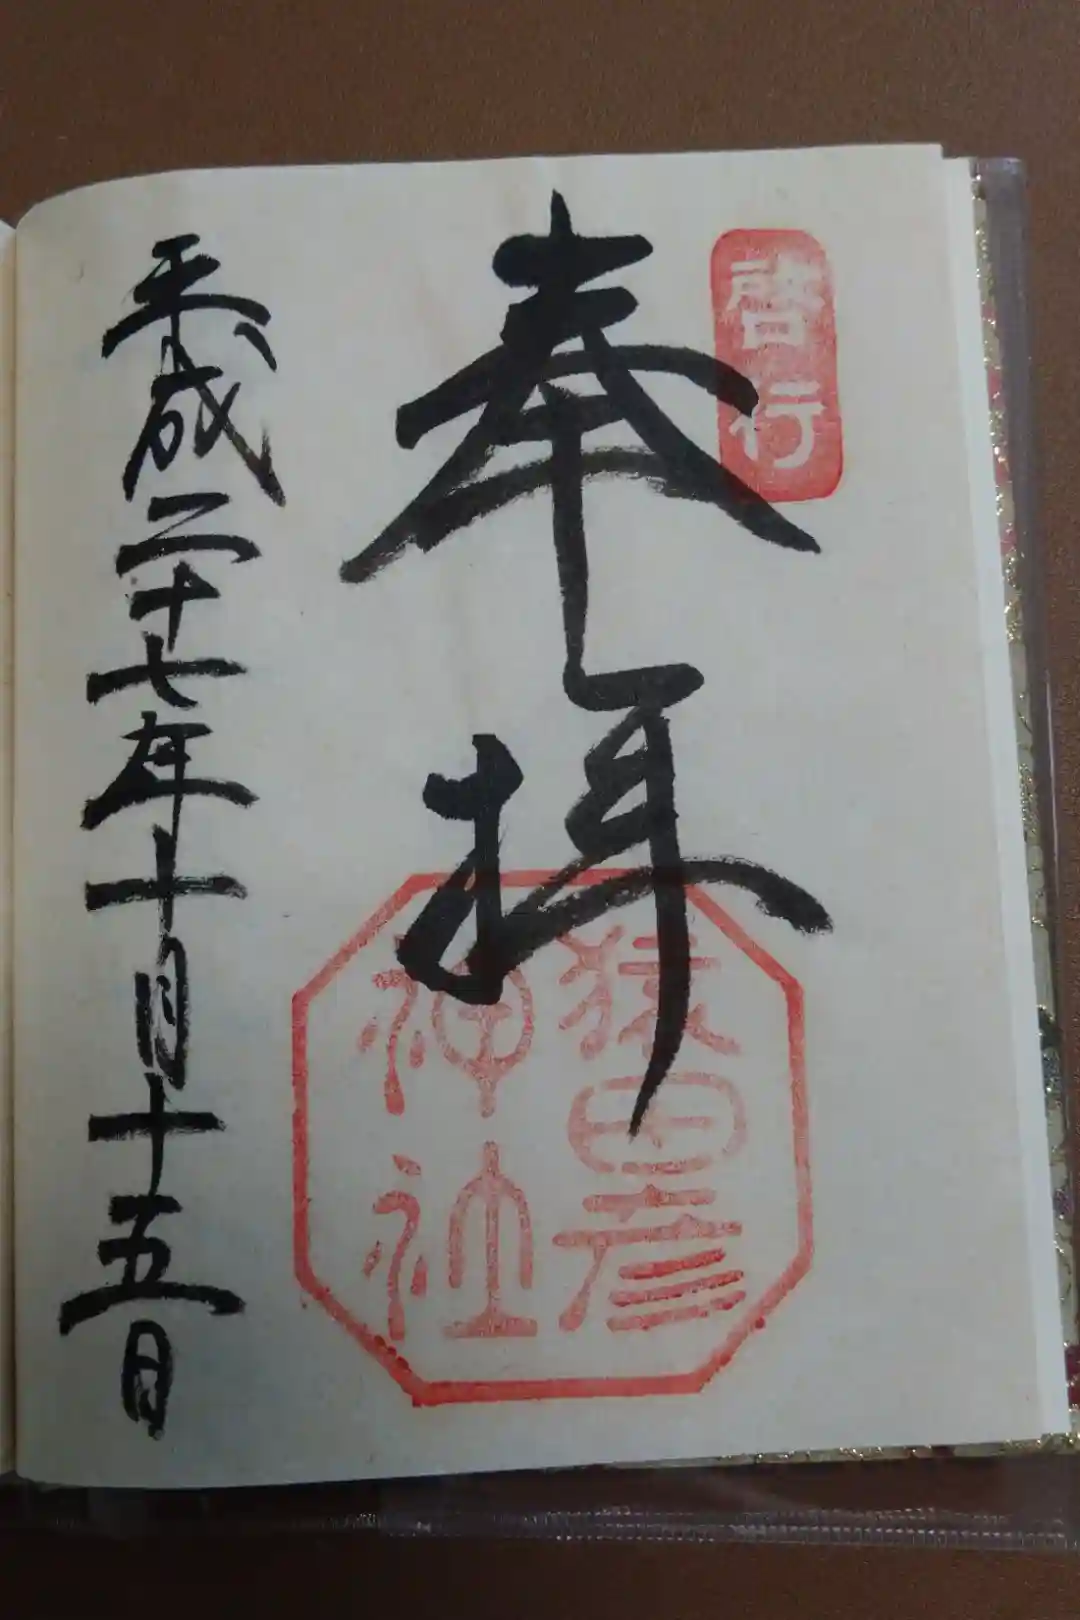 啓行
奉拝
猿田彦
神社
平成二十七年十月十五日